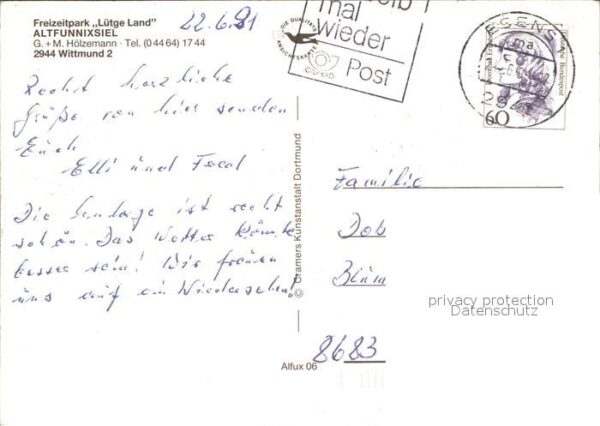 Freizeitpark „Lütge Land"
ALTFUNNIXSIEL
G. + M. Hölzemann · Tel. (0 44 64) 17 44
2944 Wittmund 2
22.6.91
DIE QUALITÄTS
ANSICHTSKARTE
mal
wieder
Post
ESENS
60
Recht herzliche
Grüße von hier senden
Euch
Elli und
Die Anlage ist recht
schön. Das Wetter könnte
besser sein! Wir freuen
uns auf ein Wiedersehen!
© Cramers Kunstanstalt Dortmund
Familie
Blüm
privacy protection
Datenschutz
8683
Alfux 06